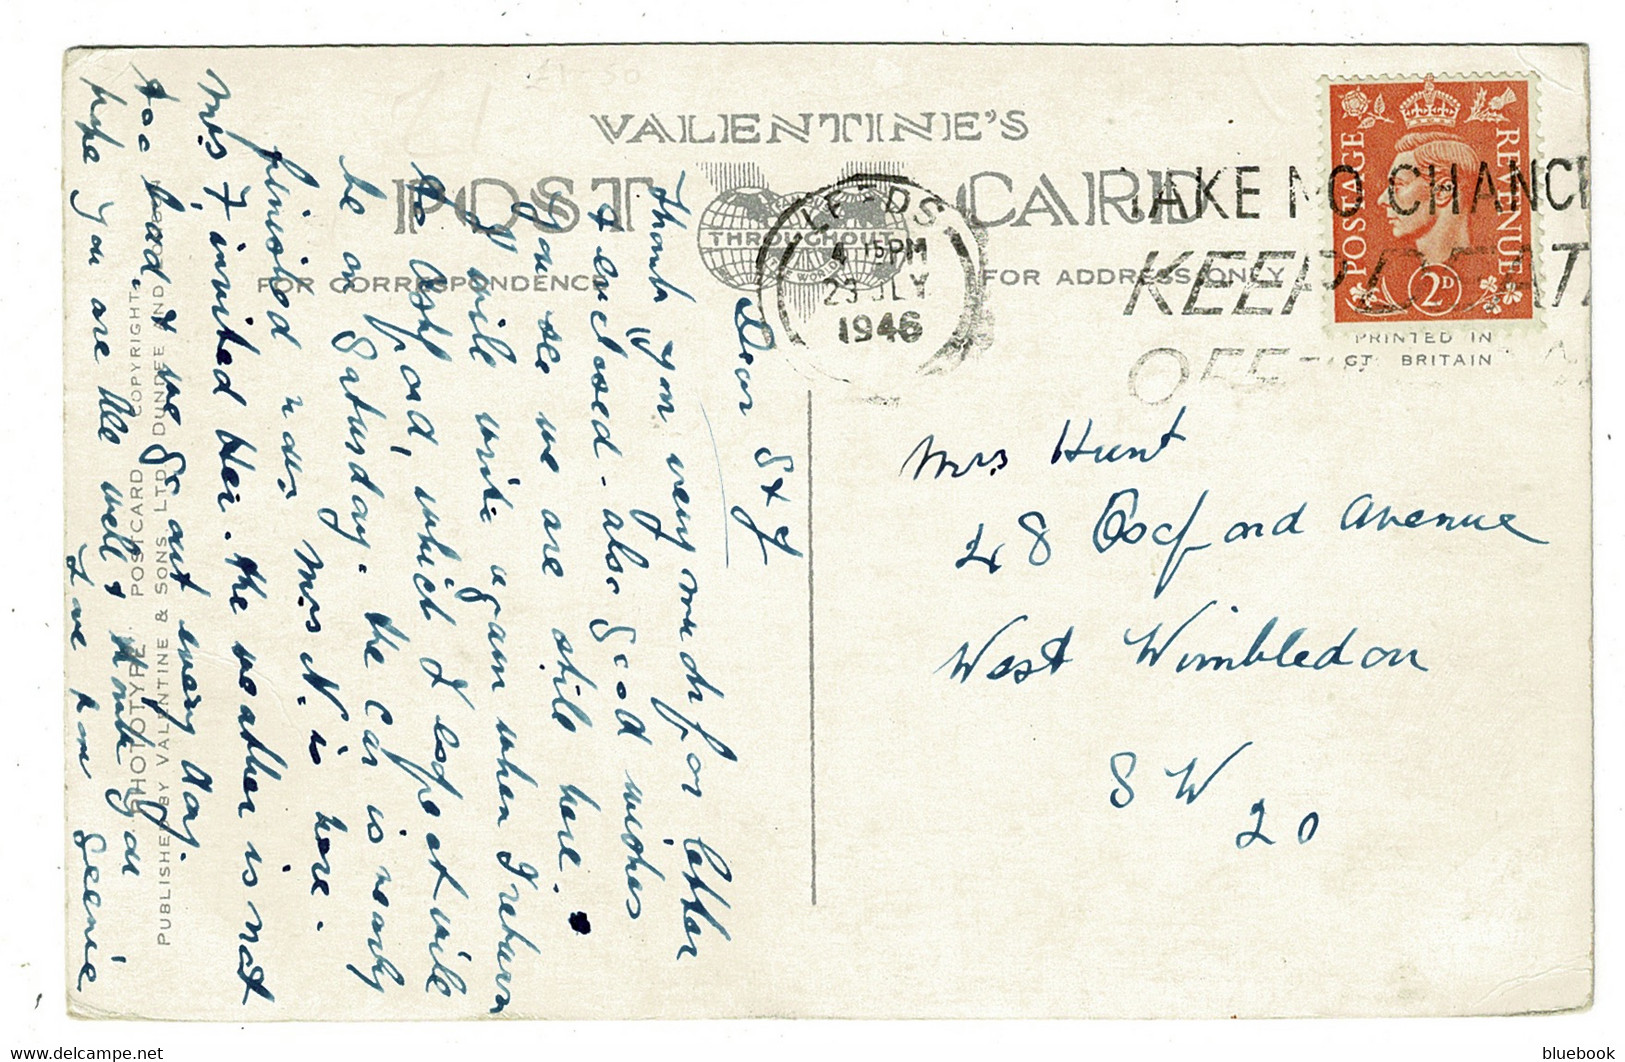 £1-50
VALENTINE'S
POST CARD
THROUGHOUT
THE WORLD
FOR CORRESPONDENCE
FOR ADDRESS ONLY
LEEDS
4 15 PM
23 JLY
1946
TAKE NO CHANC
KEEP DEAT
OFF
POSTAGE REVENUE
2D
PRINTED IN
GT. BRITAIN
Mrs Hunt
48 Oxford Avenue
West Wimbledon
S W
20
PHOTOTYPE POSTCARD COPYRIGHT
PUBLISHED BY VALENTINE & SONS, LTD., DUNDEE AND LONDON
Dear S & J
Thank you very much for letter
& enclosed - also good wishes
you see we are still here.
I will write again when I return
to Ashford, which I expect will
be on Saturday. the car is nearly
finished now. Mrs N. is here.
Mrs F. invited her. the weather is not
too bad. & we go out every day.
hope you are all well & thank you
Love from